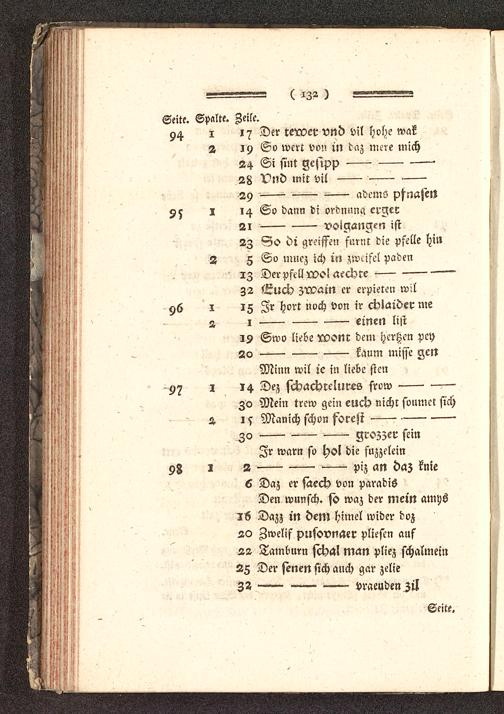 ( 132 )
Seite. Spalte. Zeile.
94 1 17 Der tewer vnd vil hohe wak
2 19 So wert von in daz mere mich
24 Si sint gesipp — — —
28 Vnd mit vil — — —
29 — — — adems pfnasen
95 1 14 So dann di ordnung erget
21 — — volgangen ist
23 So di greiffen furnt die pfelle hin
2 5 So muez ich in zweifel paden
13 Der pfell wol aechte — — —
32 Euch zwain er erpieten wil
96 1 15 Jr hort noch von ir chlaider me
2 1 — — — einen list
19 Swo liebe wont dem hertzen pey
20 — — — kaum misse gen
Minn wil ie in liebe sten
97 1 14 Dez schachtelures frow — —
30 Mein trew gein euch nicht soumet sich
2 15 Manich schon forest — —
30 — — — grozzer sein
Jr warn so hol die fuzzelein
98 1 2 — — — piz an daz knie
6 Daz er saech von paradis
Den wunsch. so waz der mein amys
16 Dazz in dem himel wider doz
20 Zwelif pusovnaer pliesen auf
22 Tamburn schal man pliez schalmein
25 Der senen sich auch gar zelie
32 — — — vraeuden zil
Seite.